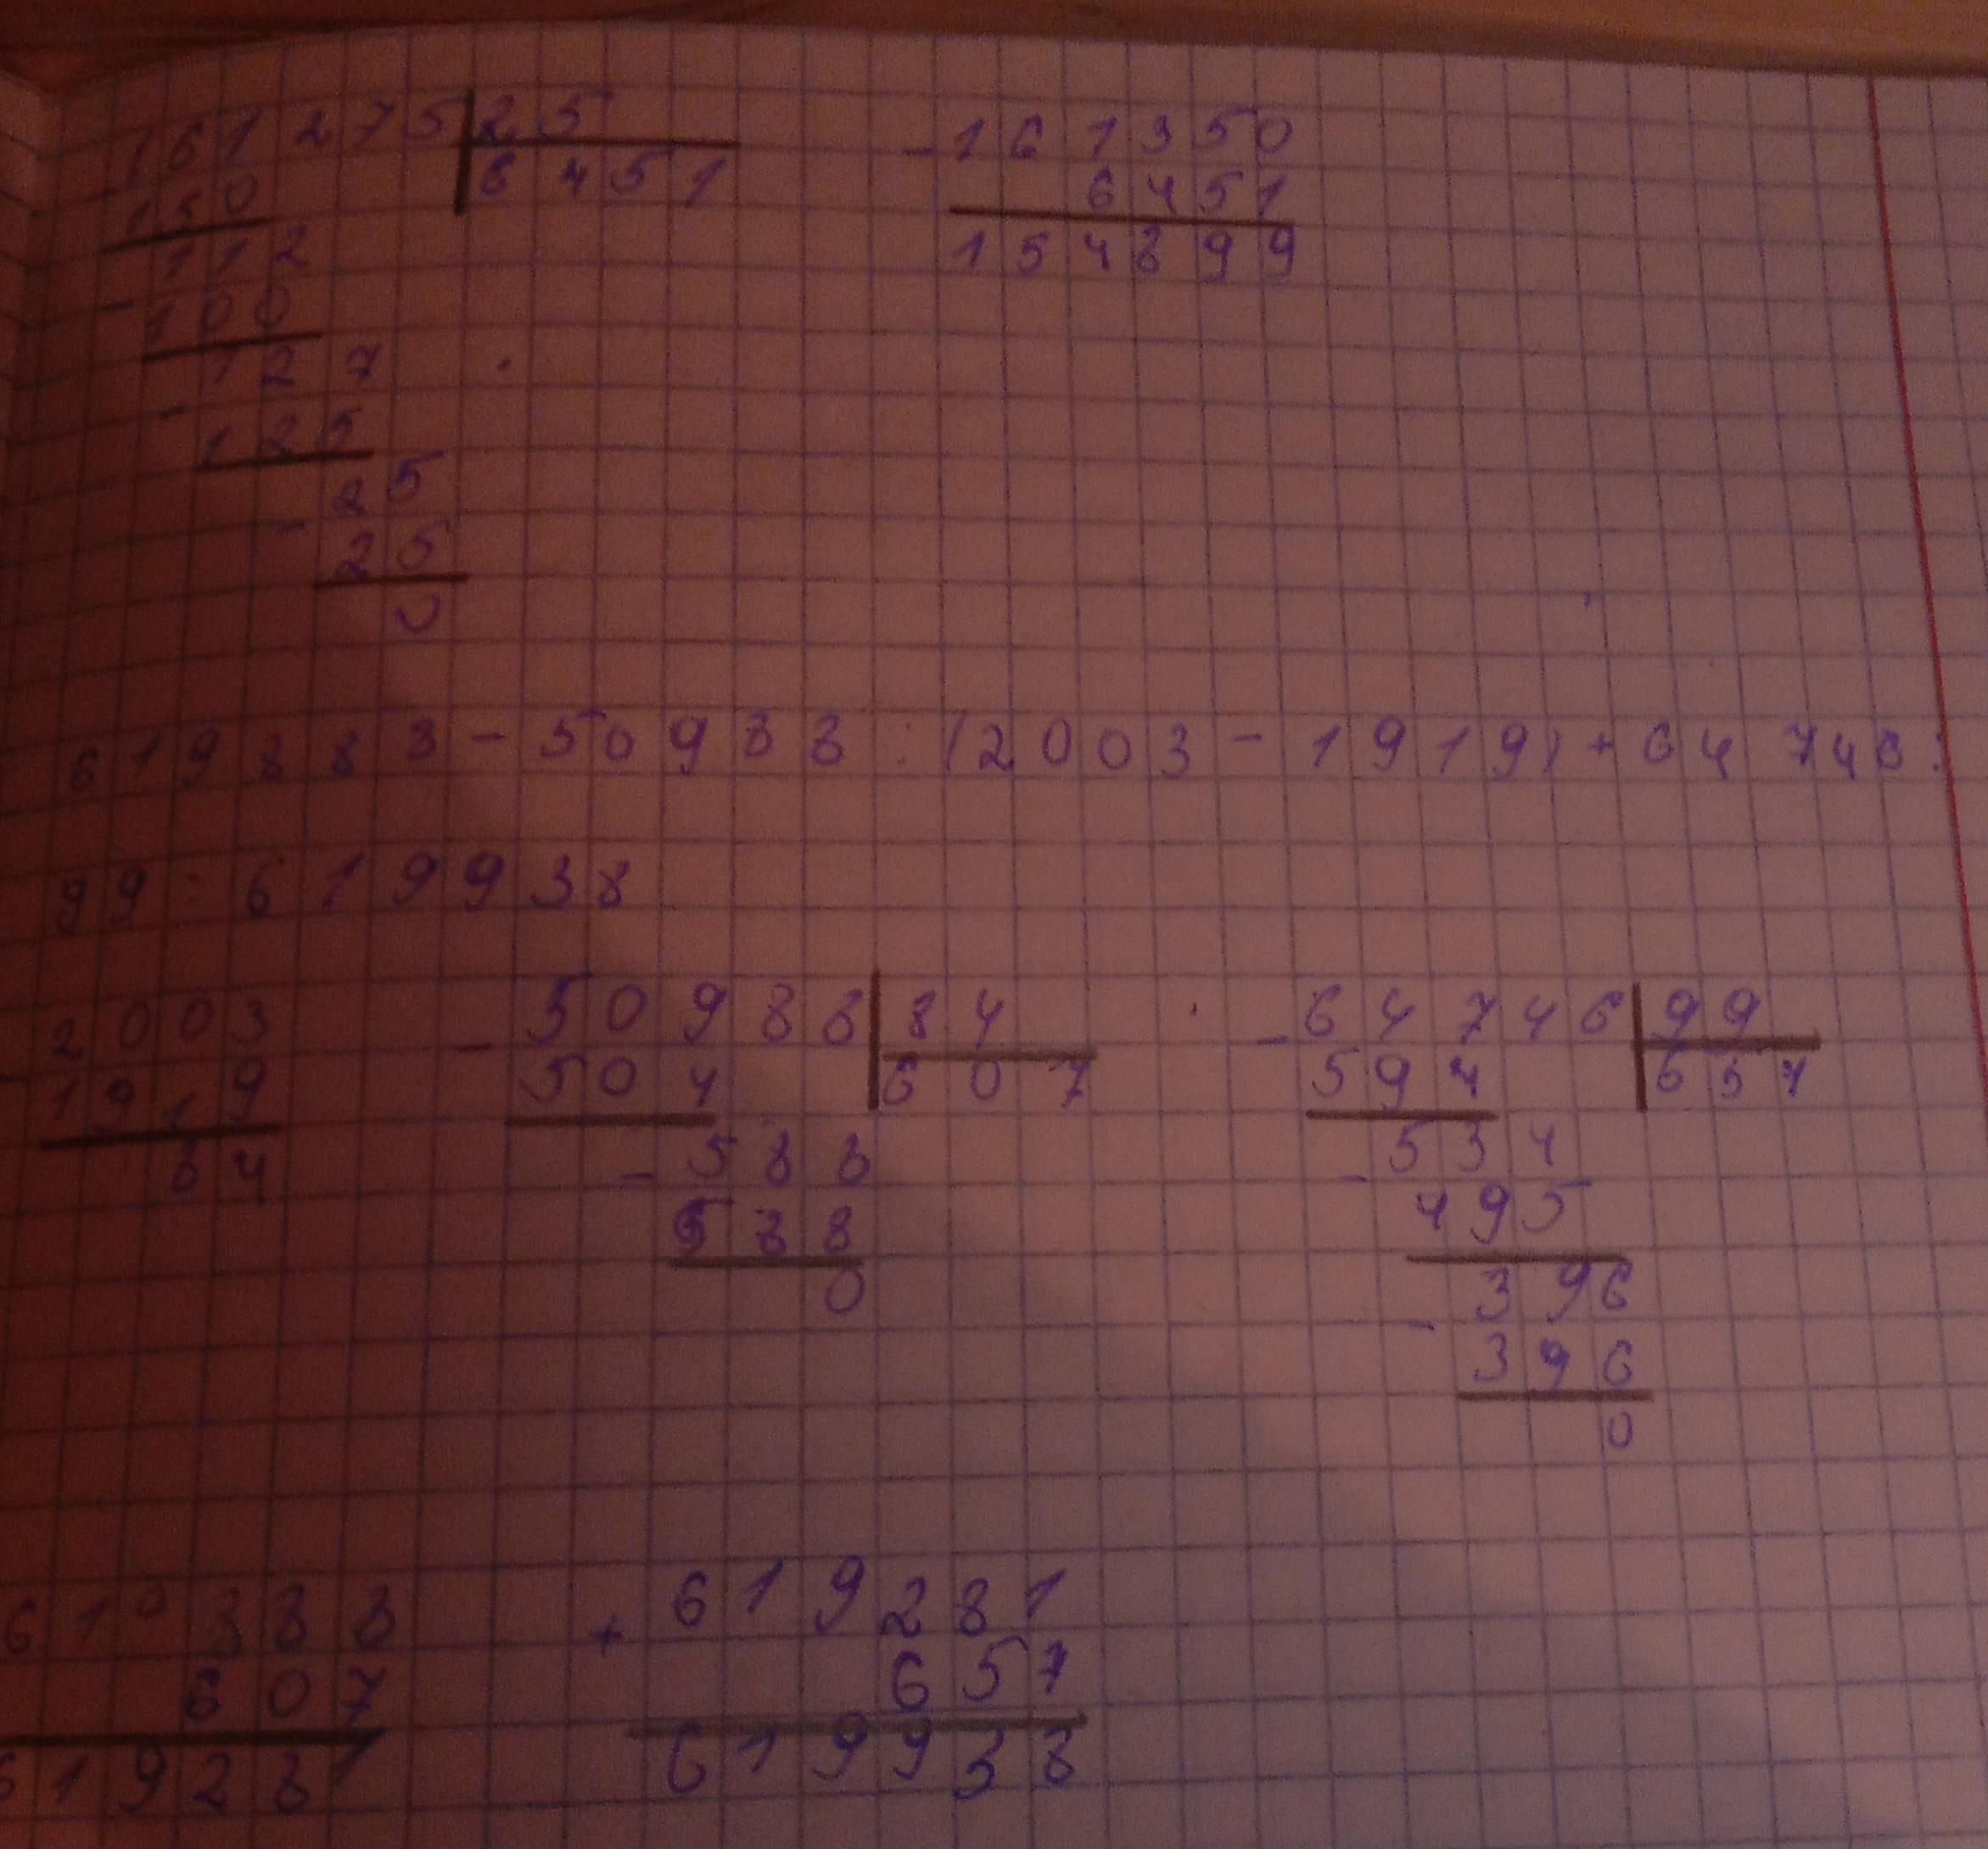 161275 25
150 6451
112
- 100
127
- 125
25
- 25
0
- 161350
6451
154899
619888 - 50988 : (2003 - 1919) + 64746 :
99 = 619938
2003
1919
84
- 50988 84
504 607
- 588
588
0
- 64746 99
594 654
- 534
495
396
- 396
0
619888
607
619281
+ 619281
657
619938